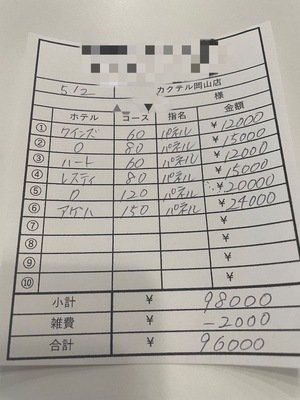 5/2 カクテル岡山店
様
ホテル コース 指名 金額
① クインズ 60 パネル ¥12000
② O 80 パネル ¥15000
③ ハート 60 パネル ¥12000
④ レスティ 80 パネル ¥15000
⑤ 120 パネル ¥20000
⑥ アゲハ 150 パネル ¥24000
⑦ ¥
⑧ ¥
⑨ ¥
⑩ ¥
小計 ¥ 98000
雑費 ¥ -2000
合計 ¥ 96000